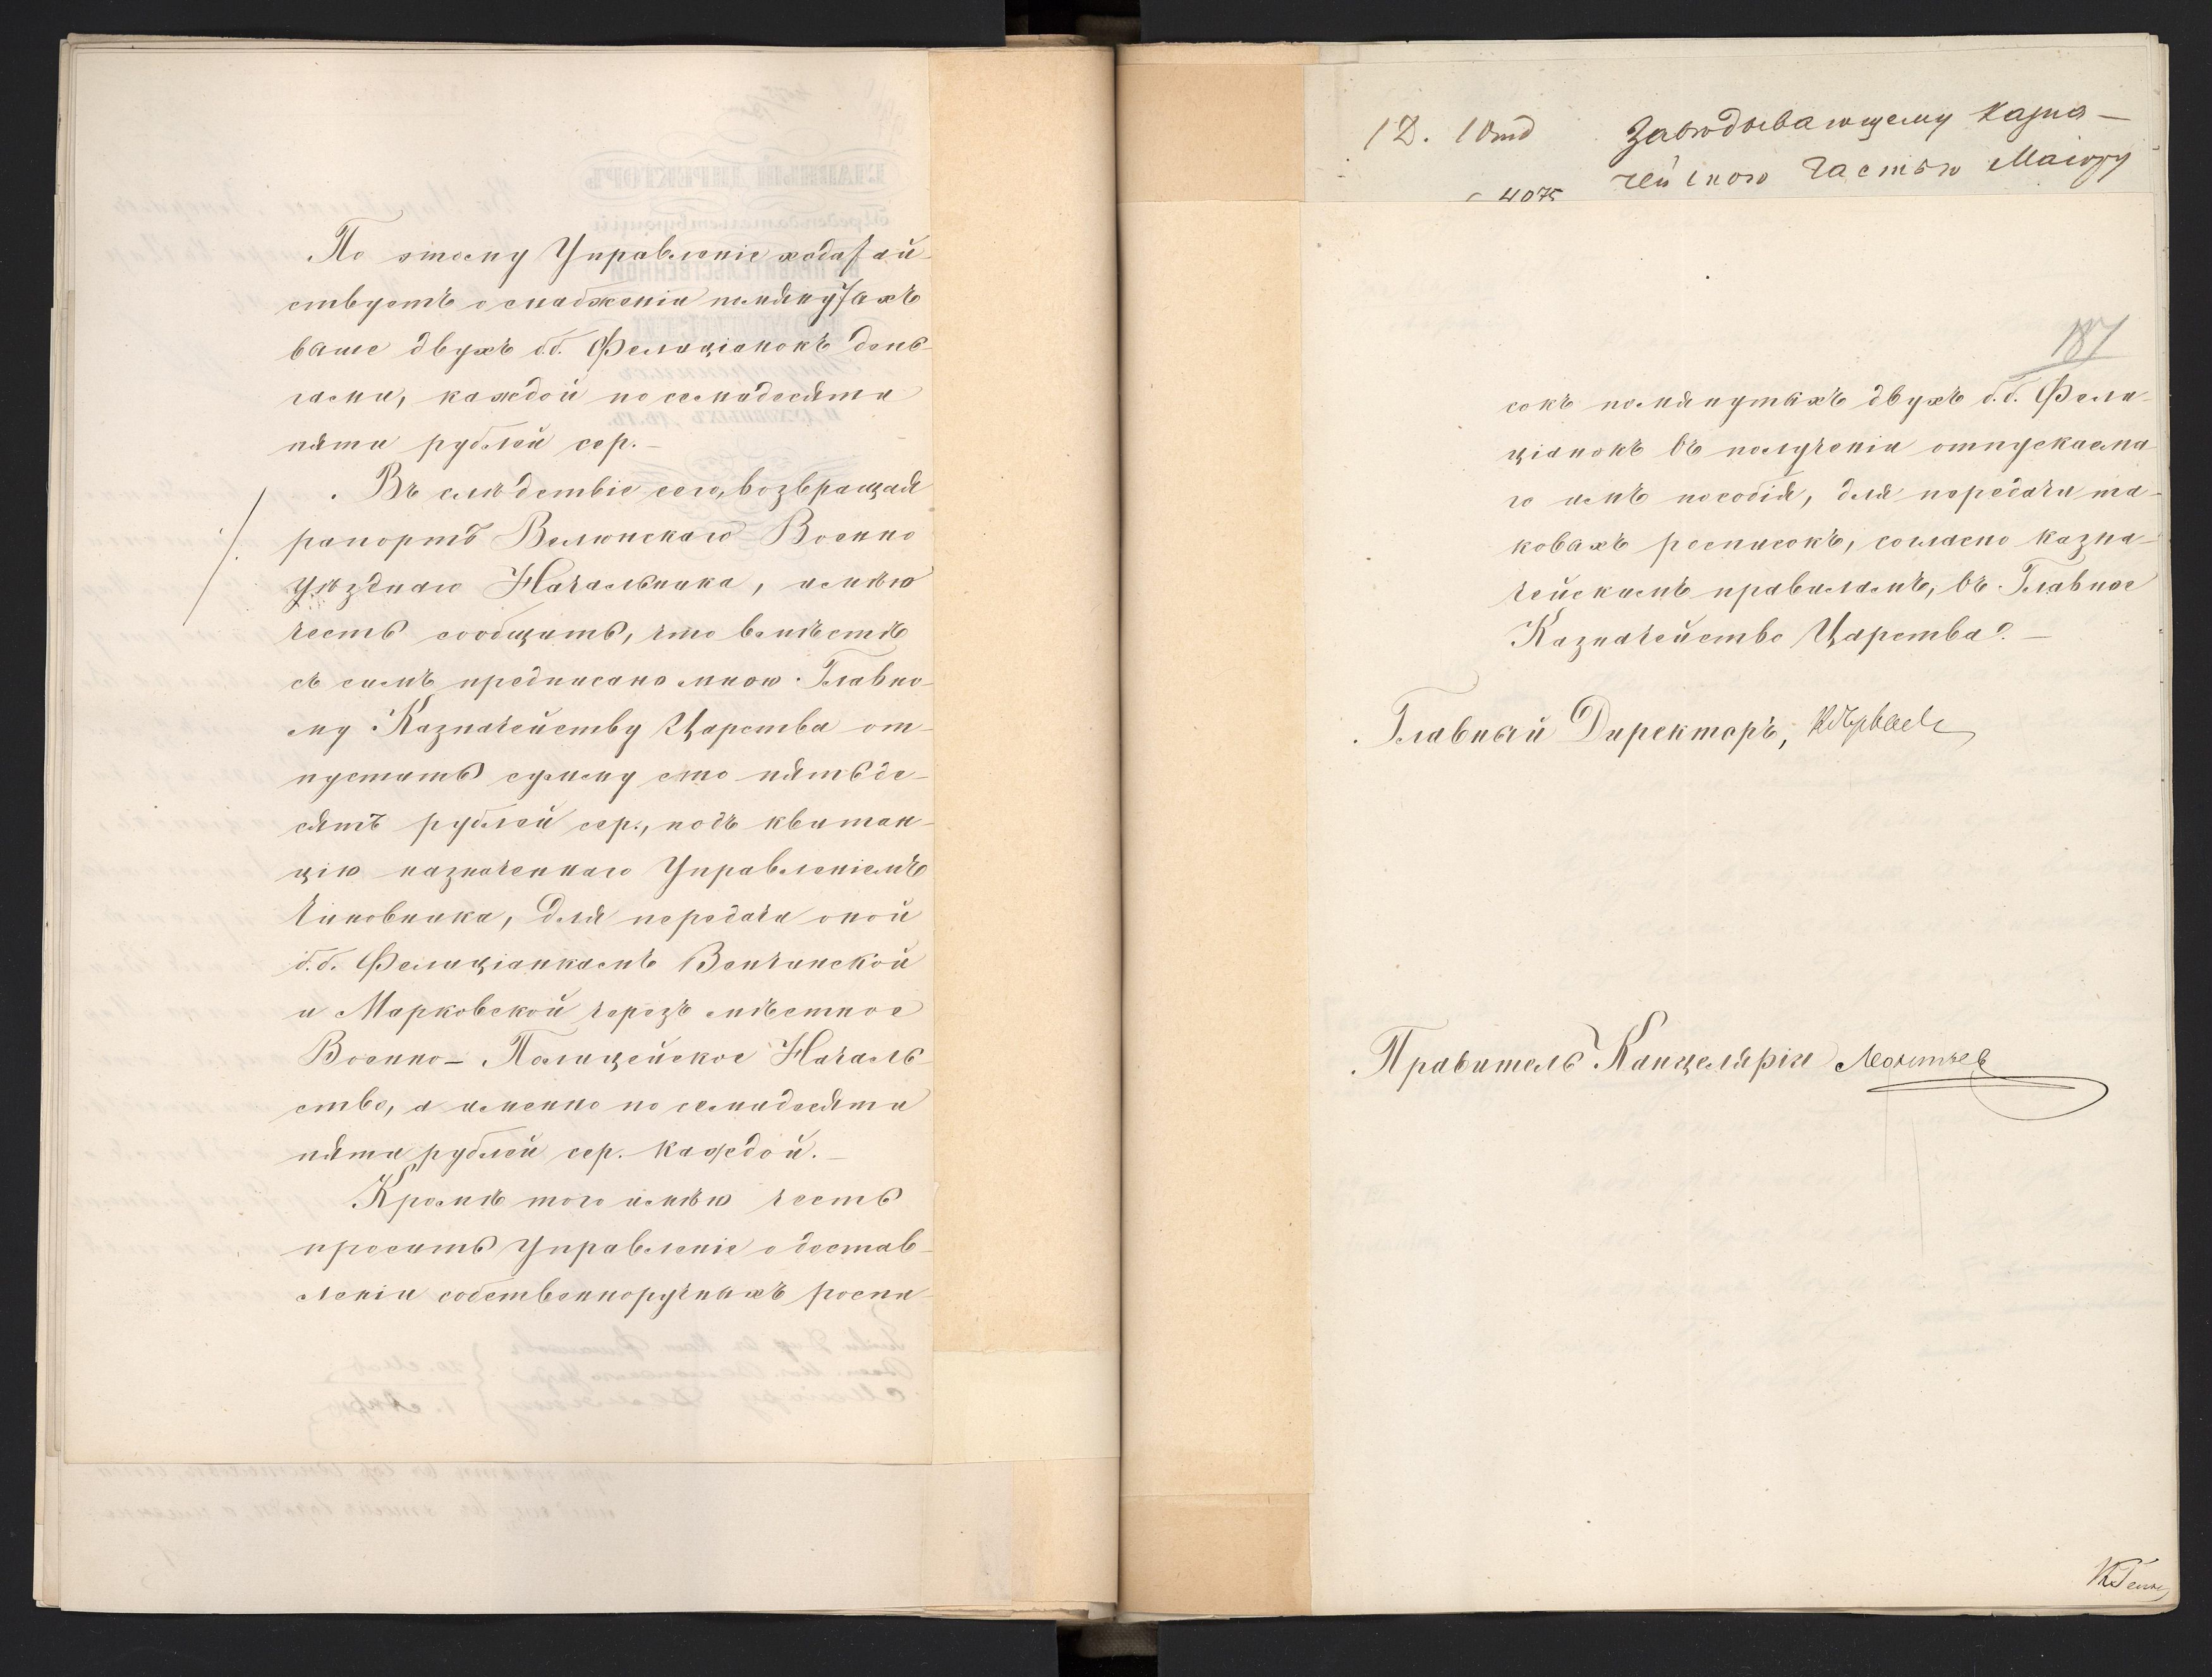 По этому Управленіе ходатай-
ствуетъ о снабженіи помянутыхъ
выше двухъ б.б. Фелиціанокъ день-
гами, каждой по семидесяти
пяти рублей сер.—
Въ слѣдствіе сего, возвращая
рапортъ Велюнскаго Военно
Уѣзднаго Начальника, имѣю
честь сообщить, что вмѣстѣ
съ симъ предписано мною Главно-
му Казначейству Царства от-
пустить сумму сто пятьде-
сятъ рублей сер., подъ квитан-
цію назначеннаго Управленіемъ
Чиновника, для передачи оной
б.б. Фелиціанкамъ Венчинской
и Марковской черезъ мѣстное
Военно-Полицейское Началь-
ство, а именно по семидесяти
пяти рублей сер. каждой.—
Кромѣ того имѣю честь
просить Управленіе о достав-
леніи собственноручныхъ роспи-
1 Д. 1 Отд
4075
Завѣдывающему Казна-
чейскою Частью Маіору
187
сокъ помянутыхъ двухъ б.б. Фели-
ціанокъ въ полученіи отпускаема-
го имъ пособія, для передачи та-
ковыхъ росписокъ, согласно казна-
чейскимъ правиламъ, въ Главное
Казначейство Царства.—
Главный Директоръ,
Правитель Канцеляріи